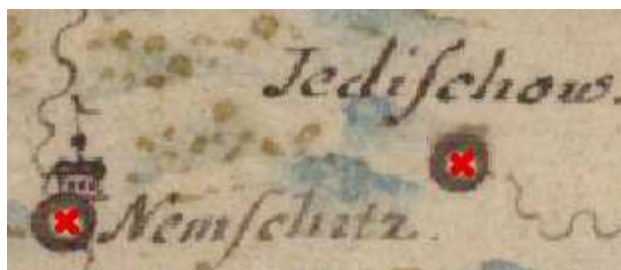 Jediſchow.
Nemſchitz.